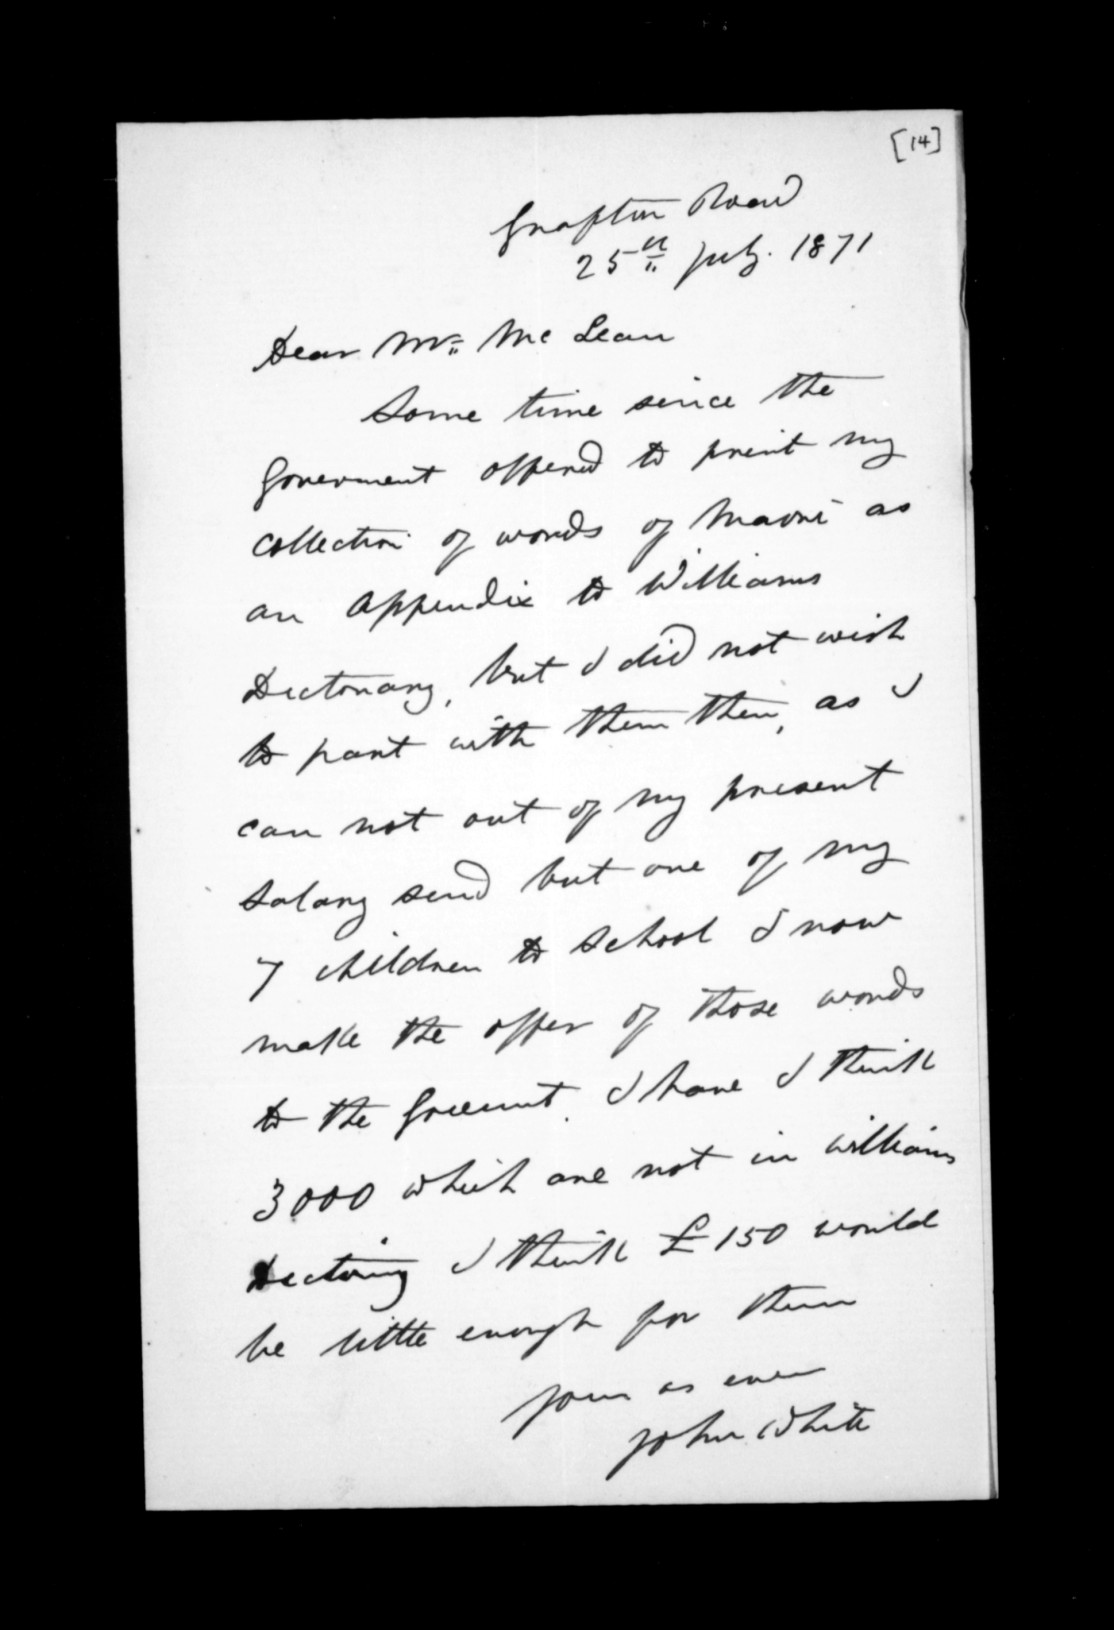 [14]
Grafton Road
25th July. 1871
Dear Mr. McLean
Some time since the
Goverment offered to print my
collection of words of Maori as
an appendix to Williams
Dictonary, but I did not wish
to part with them then, as I
can not out of my present
salary send but one of my
7 children to school I now
make the offer of those words
to the Goverment. I have I think
3000 which are not in Williams
Dictonary I think £150 would
be little enough for them
yours as ever
John White